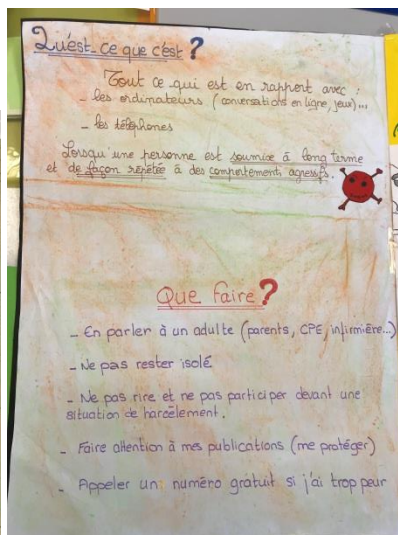 Qu'est-ce que c'est ?
Tout ce qui est en rapport avec :
- les ordinateurs (conversations en ligne, jeux)...
- les téléphones
Lorsqu'une personne est soumise à long terme
et de façon répétée à des comportements agressifs.
Que faire ?
- En parler à un adulte (parents, CPE, infirmière...)
- Ne pas rester isolé.
- Ne pas rire et ne pas participer devant une
situation de harcèlement.
- Faire attention à mes publications (me protéger)
- Appeler un numéro gratuit si j'ai trop peur